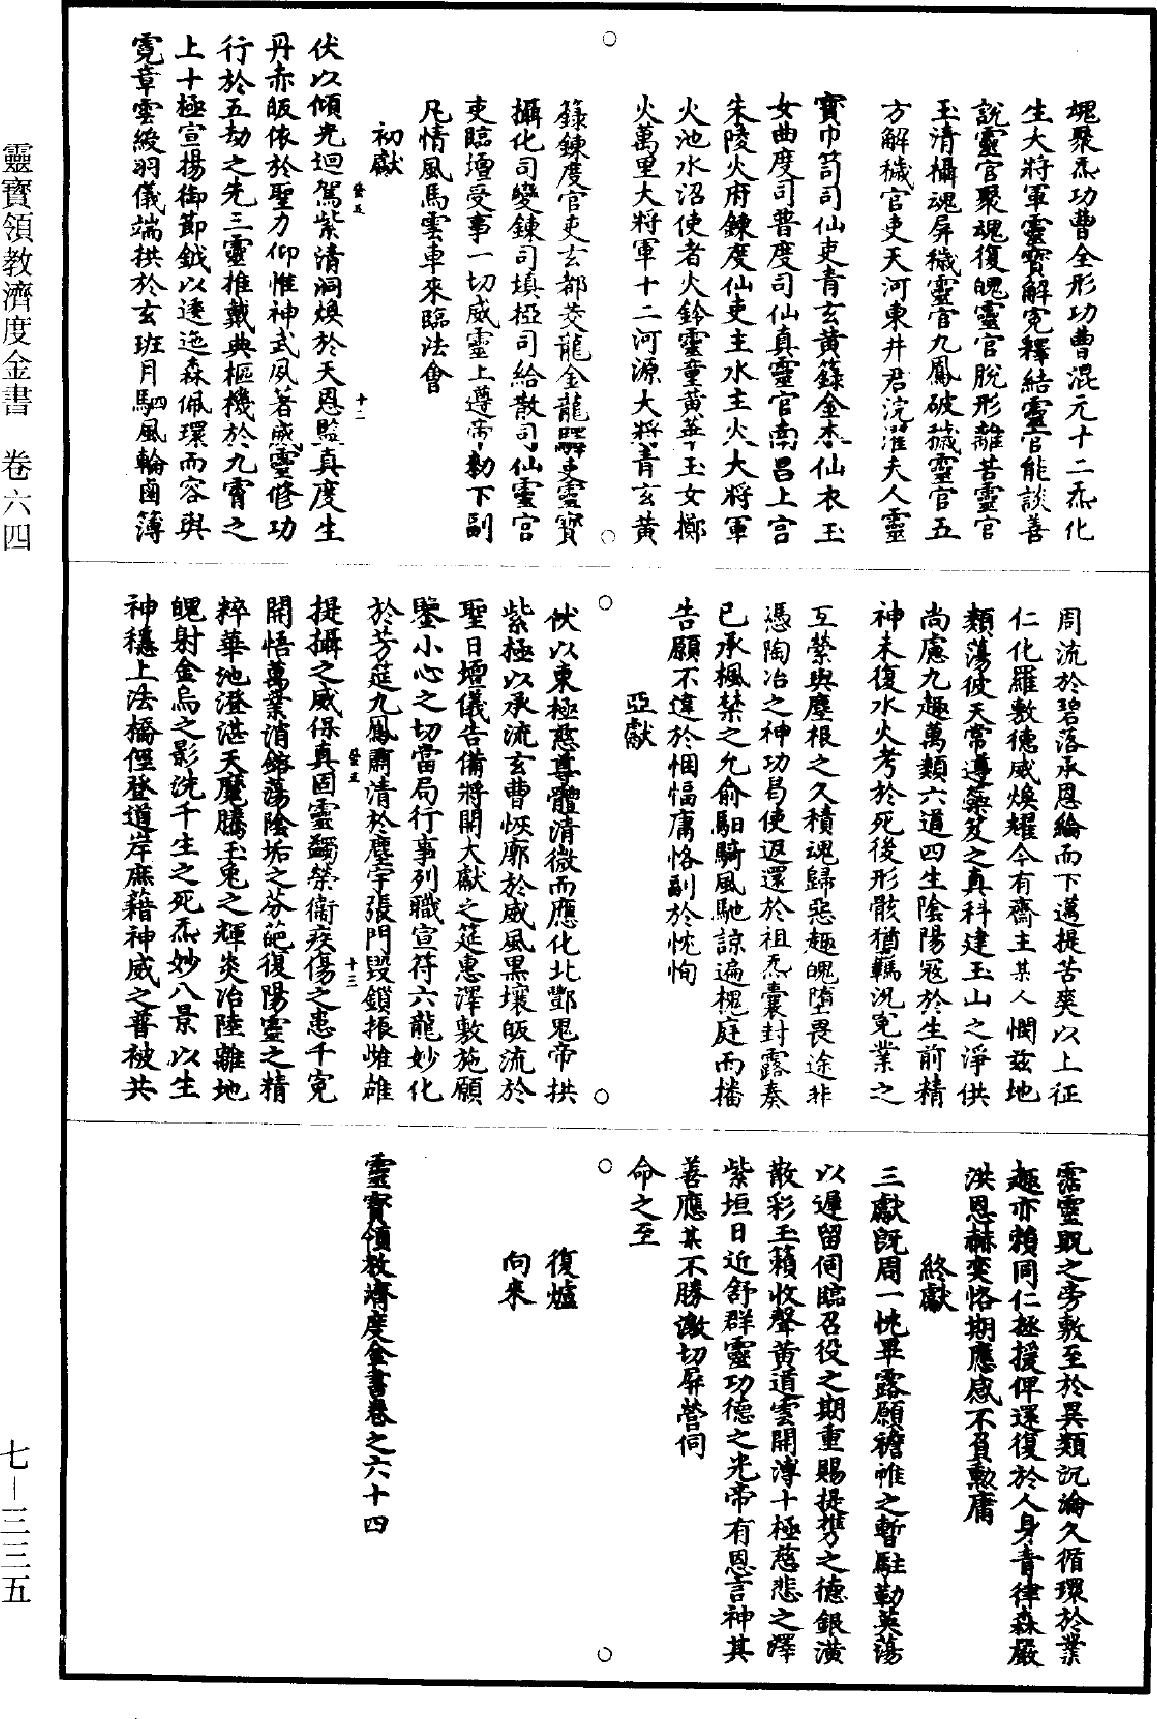 靈寶領教濟度金書 卷六四
七—三三五
魂聚炁功曹全形功曹混元十二炁化
生大將軍靈寶解冤釋結靈官能談善
說靈官聚魂復魄靈官脫形離苦靈官
玉清攝魂屏穢靈官九鳳破穢靈官五
方解穢官吏天河東井君浣濯夫人靈
寶巾笥司仙吏青玄黃籙金本仙衣玉
女曲度司普度司仙真靈官南昌上宮
朱陵火府鍊度仙吏主水主火大將軍
火池水沼使者火鈴靈童黃華玉女擲
火萬里大將軍十二河源大將青玄黃
籙鍊度官吏玄都茭龍金龍驛吏靈寶
攝化司變鍊司填極司給散司仙靈官
吏臨壇受事一切威靈上遵帝勅下副
凡情風馬雲車來臨法會
初獻
伏以傾光迴駕紫清洞煥於天恩監真度生
丹赤皈依於聖力仰惟神式夙著威靈修功
行於五劫之先三靈推戴典樞機於九霄之
上十極宣揚御節鉞以逶迤森佩環而容與
霓章雲綬羽儀端拱於玄班月駟風輪鹵簿
登五
十二
周流於碧落承恩綸而下邁提苦爽以上征
仁化羅敷德威煥耀今有齋主某人憫茲地
類蕩彼天常遵蘂笈之真科建玉山之淨供
尚慮九趣萬類六道四生陰陽冦於生前精
神未復水火考於死後形骸猶羈況冤業之
互縈與塵根之久積魂歸惡趣魄墮畏途非
憑陶冶之神功曷使返還於祖炁囊封露奏
已承楓禁之允俞馹騎風馳諒遍槐庭而播
告願不違於悃愊庸恪副於忱恂
亞獻
伏以東極慈尊體清微而應化北酆鬼帝拱
紫極以承流玄曹恢廓於威風黑壤皈流於
聖日壇儀告備將開大獻之筵惠澤敷施願
鑒小心之切當局行事列職宣符六龍妙化
於芳筵九鳳肅清於塵宇張門毀鎖振雌雄
提攝之威保真固靈蠲榮衞疫傷之患千冤
開悟萬業消鎔蕩陰垢之芬葩復陽靈之精
粹華池澄湛天魔騰玉兎之輝炎冶陸離地
魄射金烏之影洗千生之死炁妙八景以生
神穩上法橋徑登道岸庶藉神威之普被共
登五
十三
霑靈貺之旁敷至於異類沉淪久循環於業
趣亦賴同仁拯援俾還復於人身青律森嚴
洪恩赫奕恪期應感不負勳庸
終獻
三獻旣周一忱畢露願襜帷之暫駐勒英蕩
以遲留伺臨召役之期重賜提携之德銀潢
散彩玉籟收聲黃道雲開溥十極慈悲之澤
紫垣日近舒群靈功德之光帝有恩言神其
善應某不勝激切屏營伺
命之至
復爐
向來
靈寶領教濟度金書卷之六十四